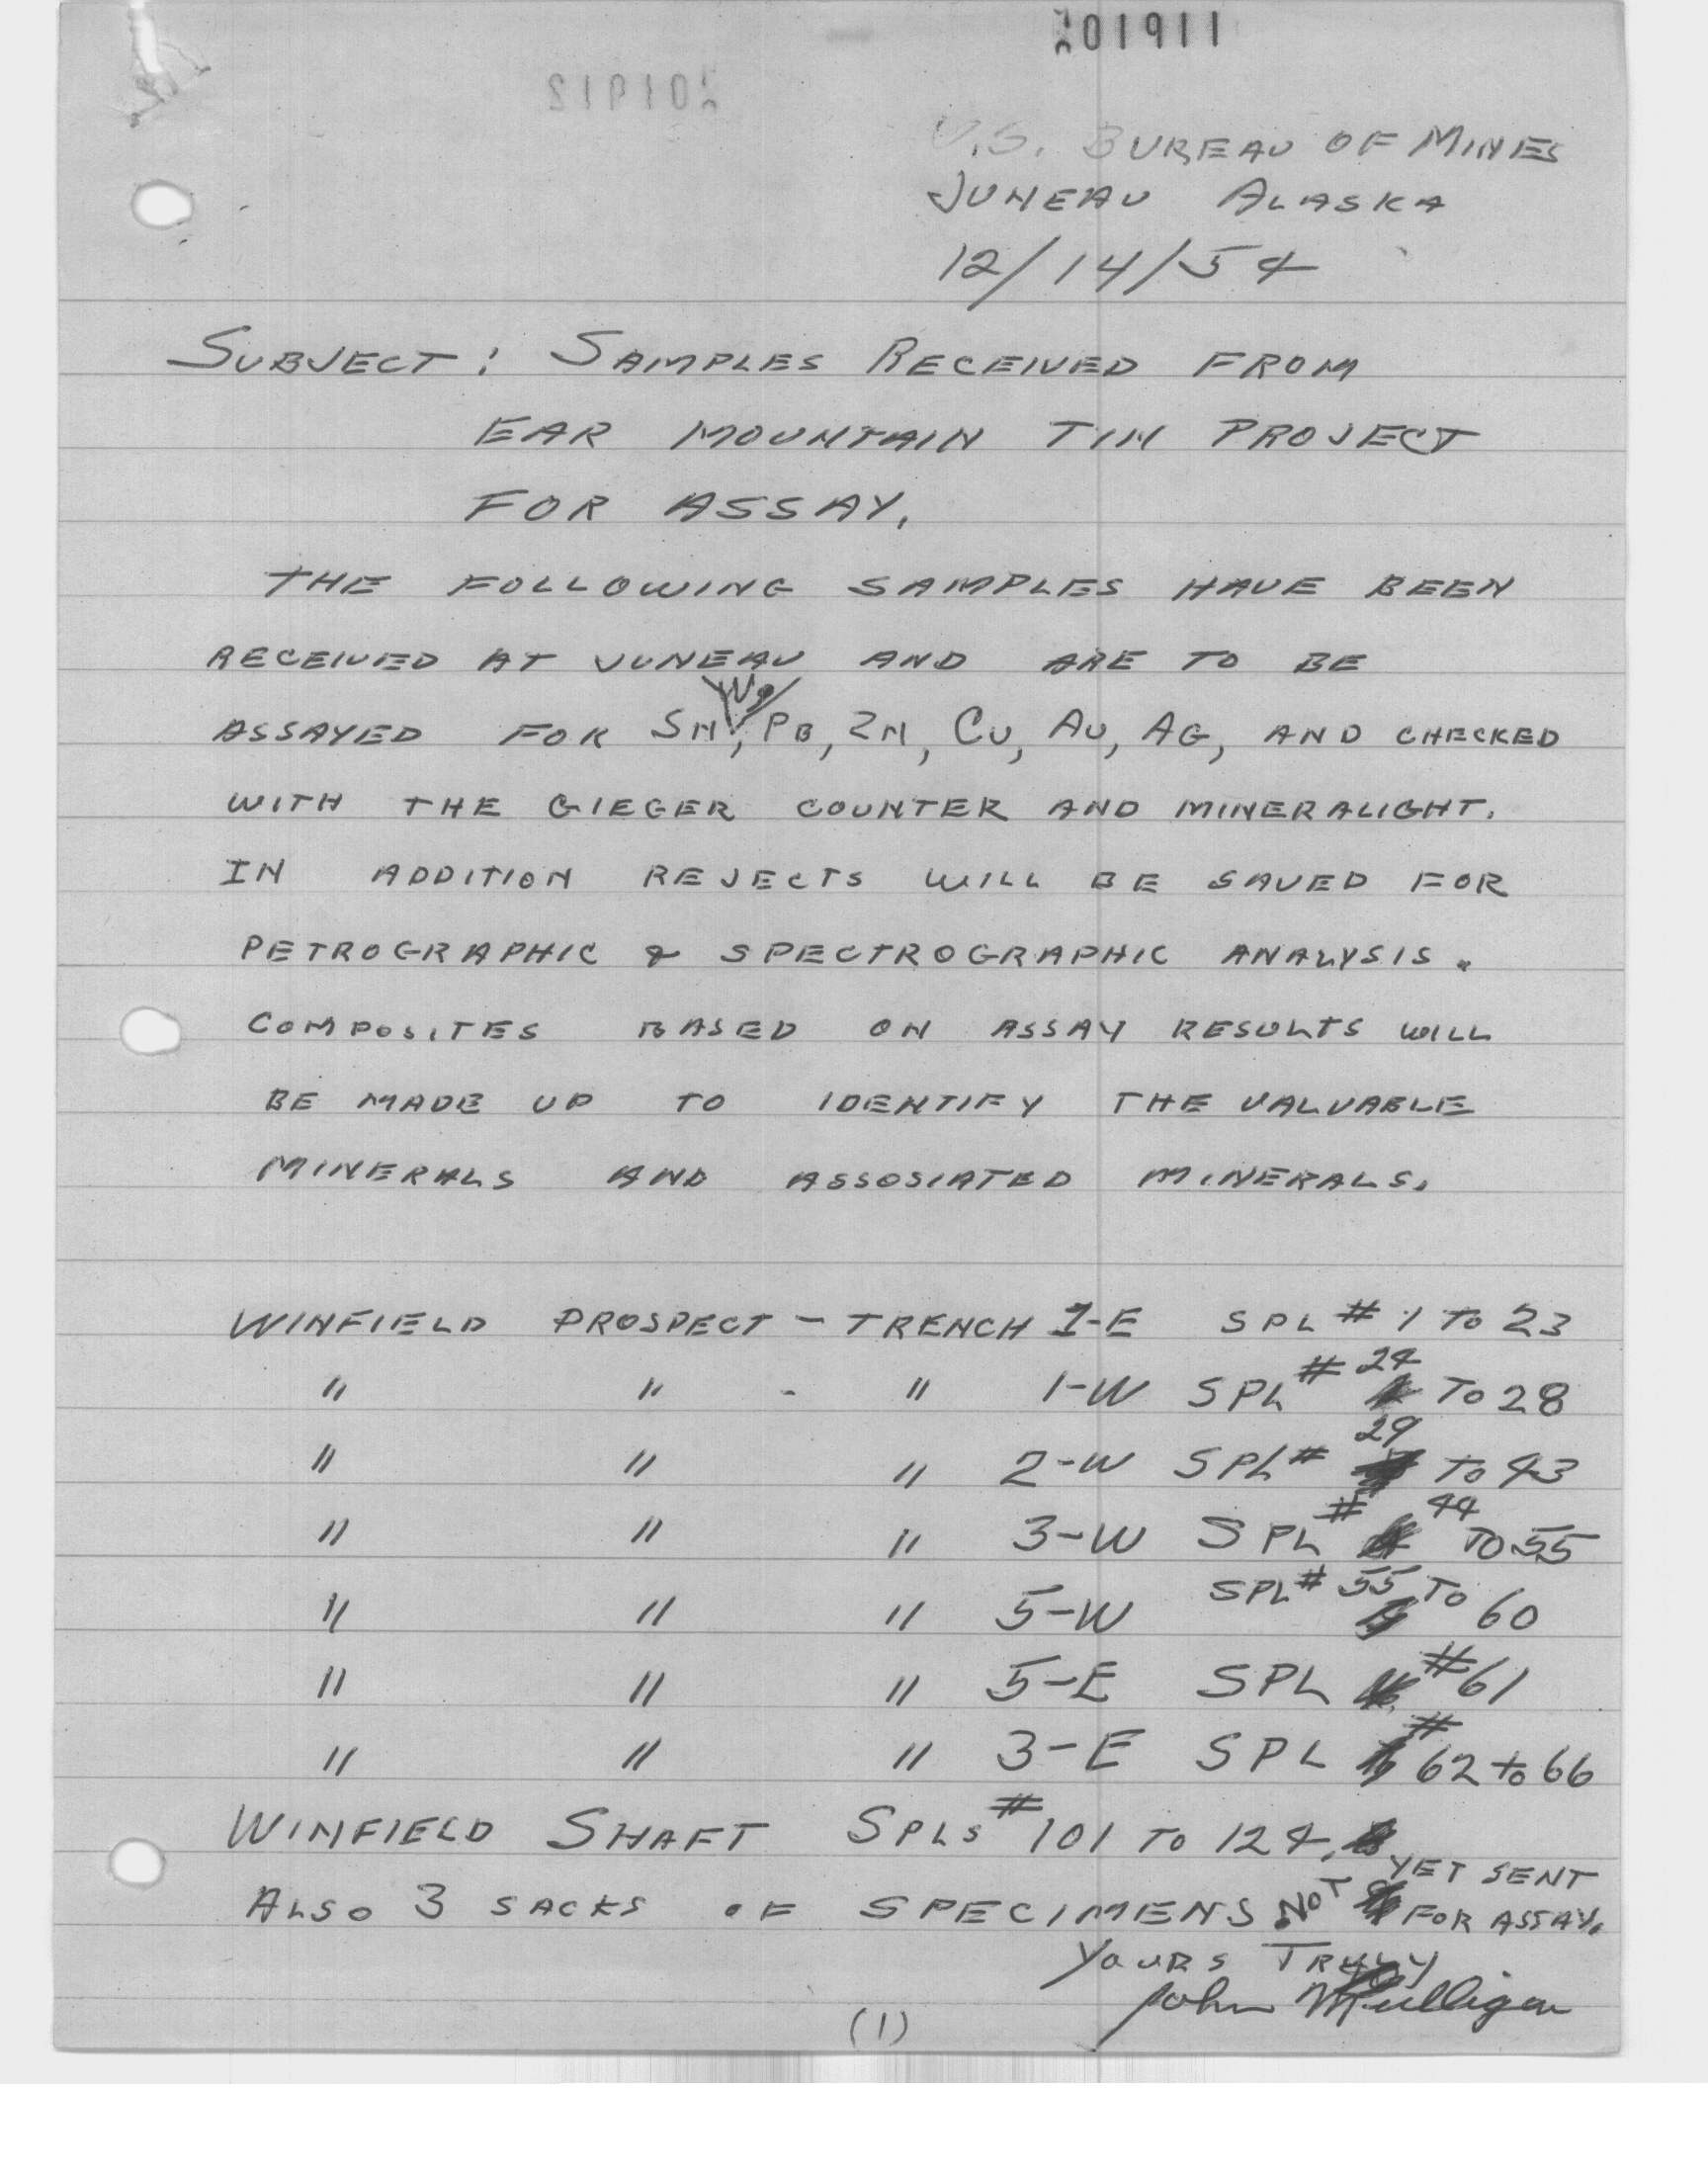 01911
01912
U.S. BUREAU OF MINES
JUNEAU ALASKA
12/14/54
SUBJECT: SAMPLES RECEIVED FROM
EAR MOUNTAIN TIN PROJECT
FOR ASSAY.
THE FOLLOWING SAMPLES HAVE BEEN
RECEIVED AT JUNEAU AND ARE TO BE
W,
ASSAYED FOR SN, PB, ZN, CU, AU, AG, AND CHECKED
WITH THE GIEGER COUNTER AND MINERALIGHT.
IN ADDITION REJECTS WILL BE SAVED FOR
PETROGRAPHIC & SPECTROGRAPHIC ANALYSIS.
COMPOSITES BASED ON ASSAY RESULTS WILL
BE MADE UP TO IDENTIFY THE VALUABLE
MINERALS AND ASSOSIATED MINERALS.
WINFIELD PROSPECT - TRENCH 1-E SPL # 1 TO 23
" " - " 1-W SPL # 24 TO 28
" " " 2-W SPL # 29 TO 43
" " " 3-W SPL # 44 TO 55
" " " 5-W SPL # 55 TO 60
" " " 5-E SPL # 61
" " " 3-E SPL # 62 to 66
WINFIELD SHAFT SPLS # 101 TO 124.
ALSO 3 SACKS OF SPECIMENS NOT YET SENT
FOR ASSAY.
YOURS TRULY
John Mulligan
(1)